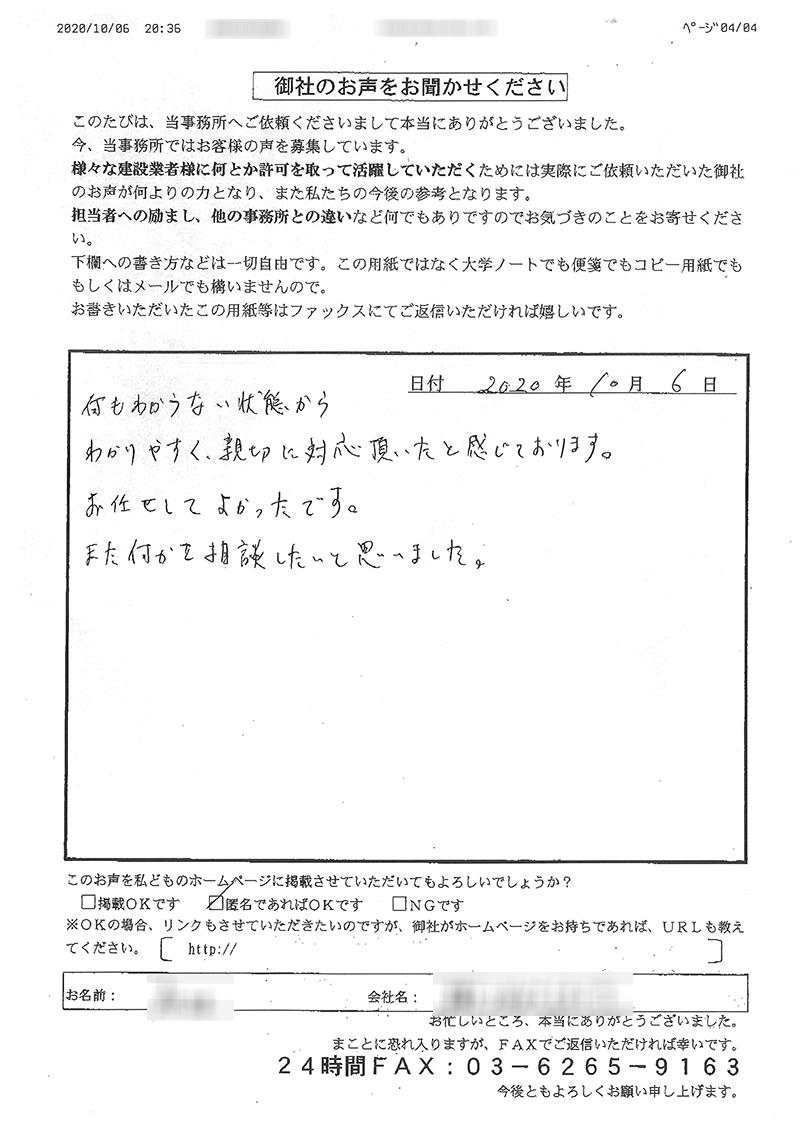 2020/10/06 20:36 ﾍﾟｰｼﾞ 04/04
御社のお声をお聞かせください
このたびは、当事務所へご依頼くださいまして本当にありがとうございました。
今、当事務所ではお客様の声を募集しています。
様々な建設業者様に何とか許可を取って活躍していただくためには実際にご依頼いただいた御社
のお声が何よりの力となり、また私たちの今後の参考となります。
担当者への励まし、他の事務所との違いなど何でもありですのでお気づきのことをお寄せくださ
い。
下欄への書き方などは一切自由です。この用紙ではなく大学ノートでも便箋でもコピー用紙でも
もしくはメールでも構いませんので。
お書きいただいたこの用紙等はファックスにてご返信いただければ嬉しいです。
日付 2020 年 10 月 6 日
何もわからない状態から
わかりやすく、親切に対応頂いたと感じております。
お任せしてよかったです。
また何かを相談したいと思いました。
このお声を私どものホームページに掲載させていただいてもよろしいでしょうか？
□掲載OKです ☑匿名であればOKです □NGです
※OKの場合、リンクもさせていただきたいのですが、御社がホームページをお持ちであれば、URLも教え
てください。 [ http:// ]
お名前： 会社名：
お忙しいところ、本当にありがとうございました。
まことに恐れ入りますが、FAXでご返信いただければ幸いです。
24時間FAX：03-6265-9163
今後ともよろしくお願い申し上げます。